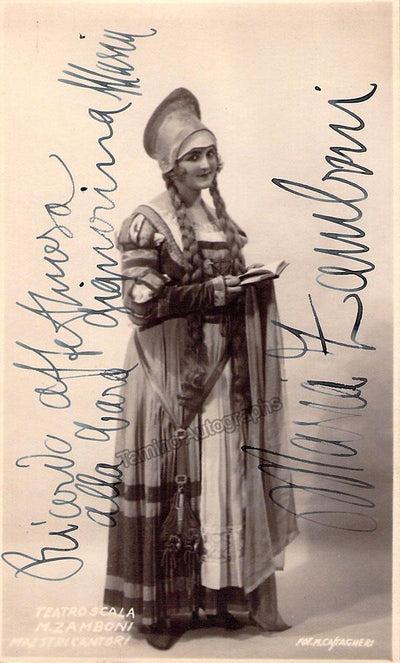 Ricordo affettuosa
alla cara signorina Maria
Maria Zamboni
Tamino Autographs
TEATRO SCALA
M. ZAMBONI
MAESTRI CANTORI
FOT. M. CASTAGNERI